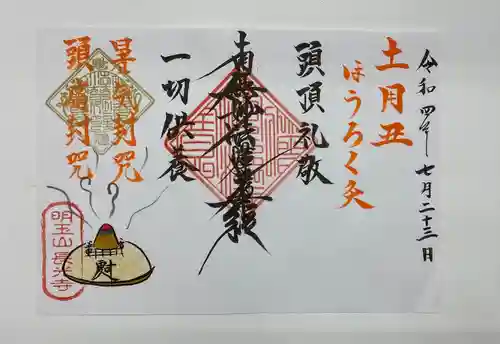 令和四年七月二十三日
土用丑
ほうろく灸
頭頂礼敬
南無妙法蓮華経
一切供養
暑気封咒
頭痛封咒
明王山長光寺